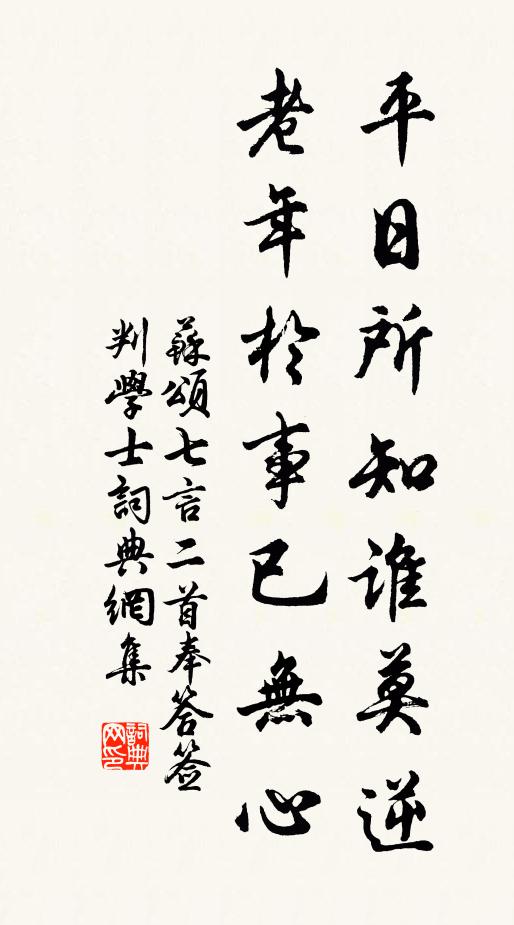 平日所知誰莫逆
老年於事已無心
蘇頌七言二首奉答簽
判學士詞典網集
詞典
网印